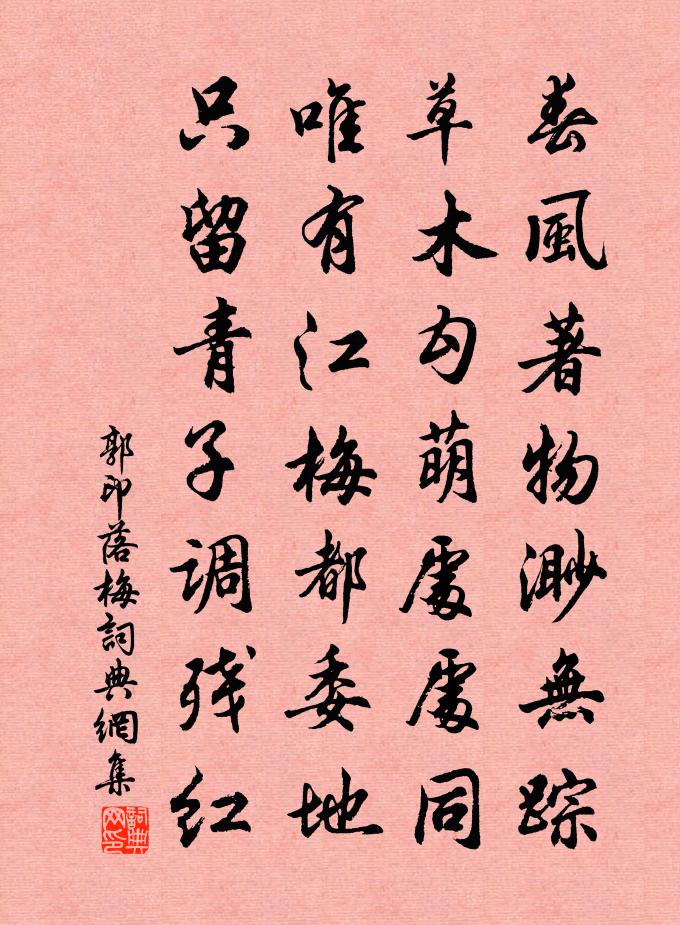 春風著物渺無踪
草木勾萌處處同
唯有江梅都委地
只留青子调残红
郭印落梅詞典網集
詞典网印